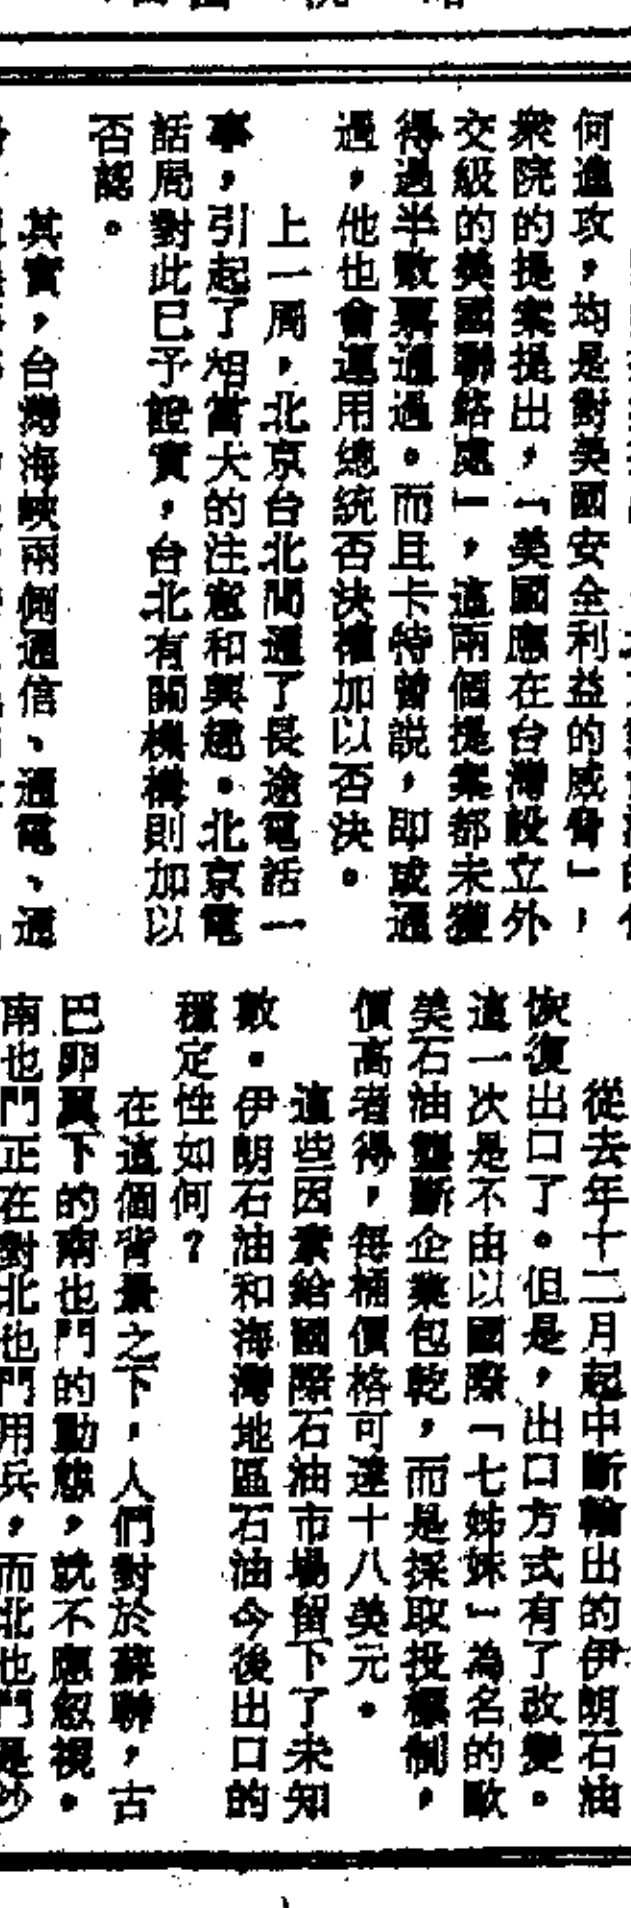 何進攻，均是對美國安全利益的威脅」，
衆院的提案提出，「美國應在台灣設立外
交級的美國聯絡處」，這兩個提案都未獲
得過半數票通過。而且卡特曾説，即或通
過，他也會運用總統否決權加以否決。
上一周，北京台北間通了長途電話一
事，引起了相當大的注意和興趣。北京電
話局對此已予證實，台北有關機構則加以
否認。
其實，台灣海峽兩側通信、通電、通
從去年十二月起中斷輸出的伊朗石油
恢復出口了。但是，出口方式有了改變。
這一次是不由以國際「七姊妹」為名的歐
美石油壟斷企業包乾，而是採取投標制，
價高者得，每桶價格可達十八美元。
這些因素給國際石油市場留下了未知
數。伊朗石油和海灣地區石油今後出口的
穩定性如何？
在這個背景之下，人們對於蘇聯，古
巴卵翼下的南也門的動態，就不應忽視。
南也門正在對北也門用兵，而北也門是沙